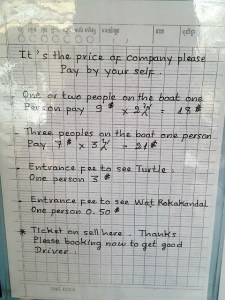 It's the price of company please
Pay by your self.
One or two people on the boat one
Person pay 9$ x 2 = 18$
Three peoples on the boat one person
Pay 7$ x 3 = 21$
- Entrance fee to see Turtle.
One person 3$
- Entrance fee to see Wat Rokakandal
One person 0.50$
* Ticket on sell here. Thanks
Please booking now to get good
Driver.